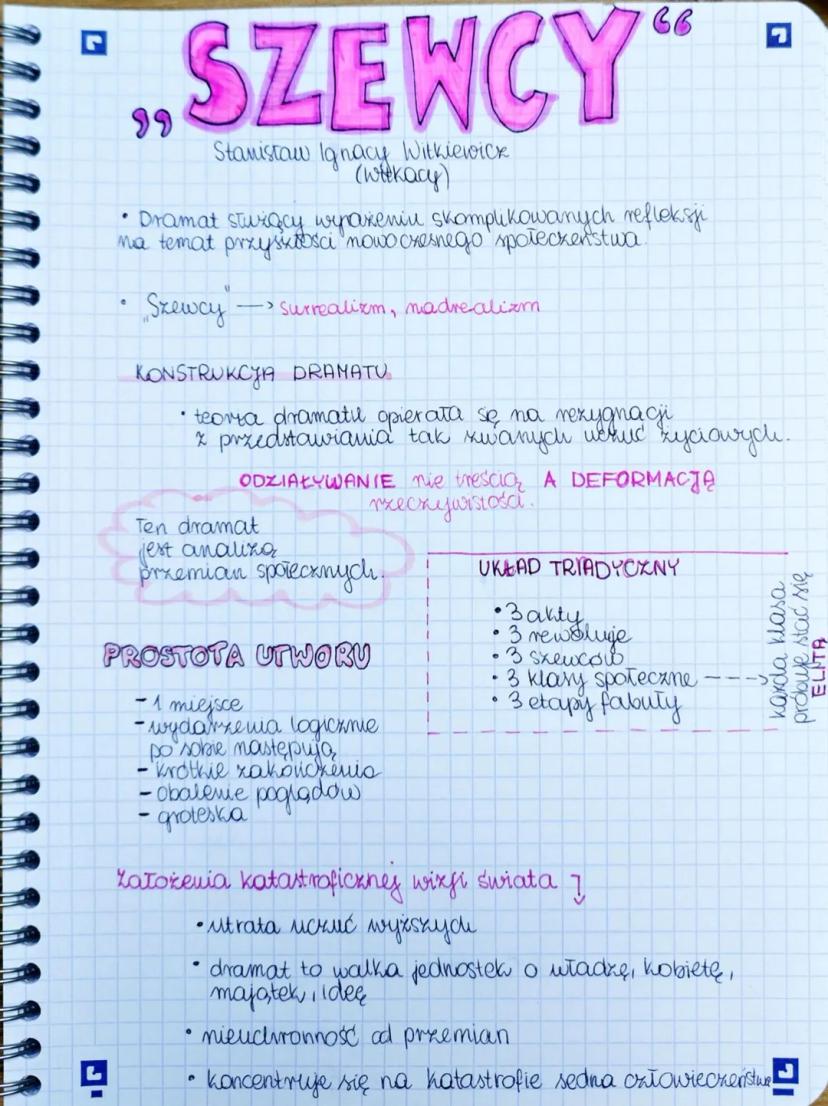 „SZEWCY“
Stanisław Ignacy Witkiewicz
(Witkacy)
• Dramat służący wyrażeniu skomplikowanych refleksji
na temat przyszłości nowoczesnego społeczeństwa.
• „Szewcy" —> surrealizm, nadrealizm
KONSTRUKCJA DRAMATU
• teoria dramatu opierała się na rezygnacji
z przedstawiania tak zwanych uczuć życiowych.
ODZIAŁYWANIE nie treścią A DEFORMACJĄ
rzeczywistości.
Ten dramat
jest analizą
przemian społecznych.
PROSTOTA UTWORU
- 1 miejsce
- wydarzenia logicznie
po sobie następują
- krótkie zakończenia
- obalenie poglądów
- groteska
UKŁAD TRIADYCZNY
• 3 akty
• 3 rewolucje
• 3 szewców
• 3 klasy społeczne --->
• 3 etapy fabuły
każda klasa
próbuje stać się
ELITĄ
Założenia katastroficznej wizji świata
• utrata uczuć wyższych
• dramat to walka jednostek o władzę, kobietę,
majątek, ideę
• nieuchronność od przemian
• koncentruje się na katastrofie sedna człowieczeństwa